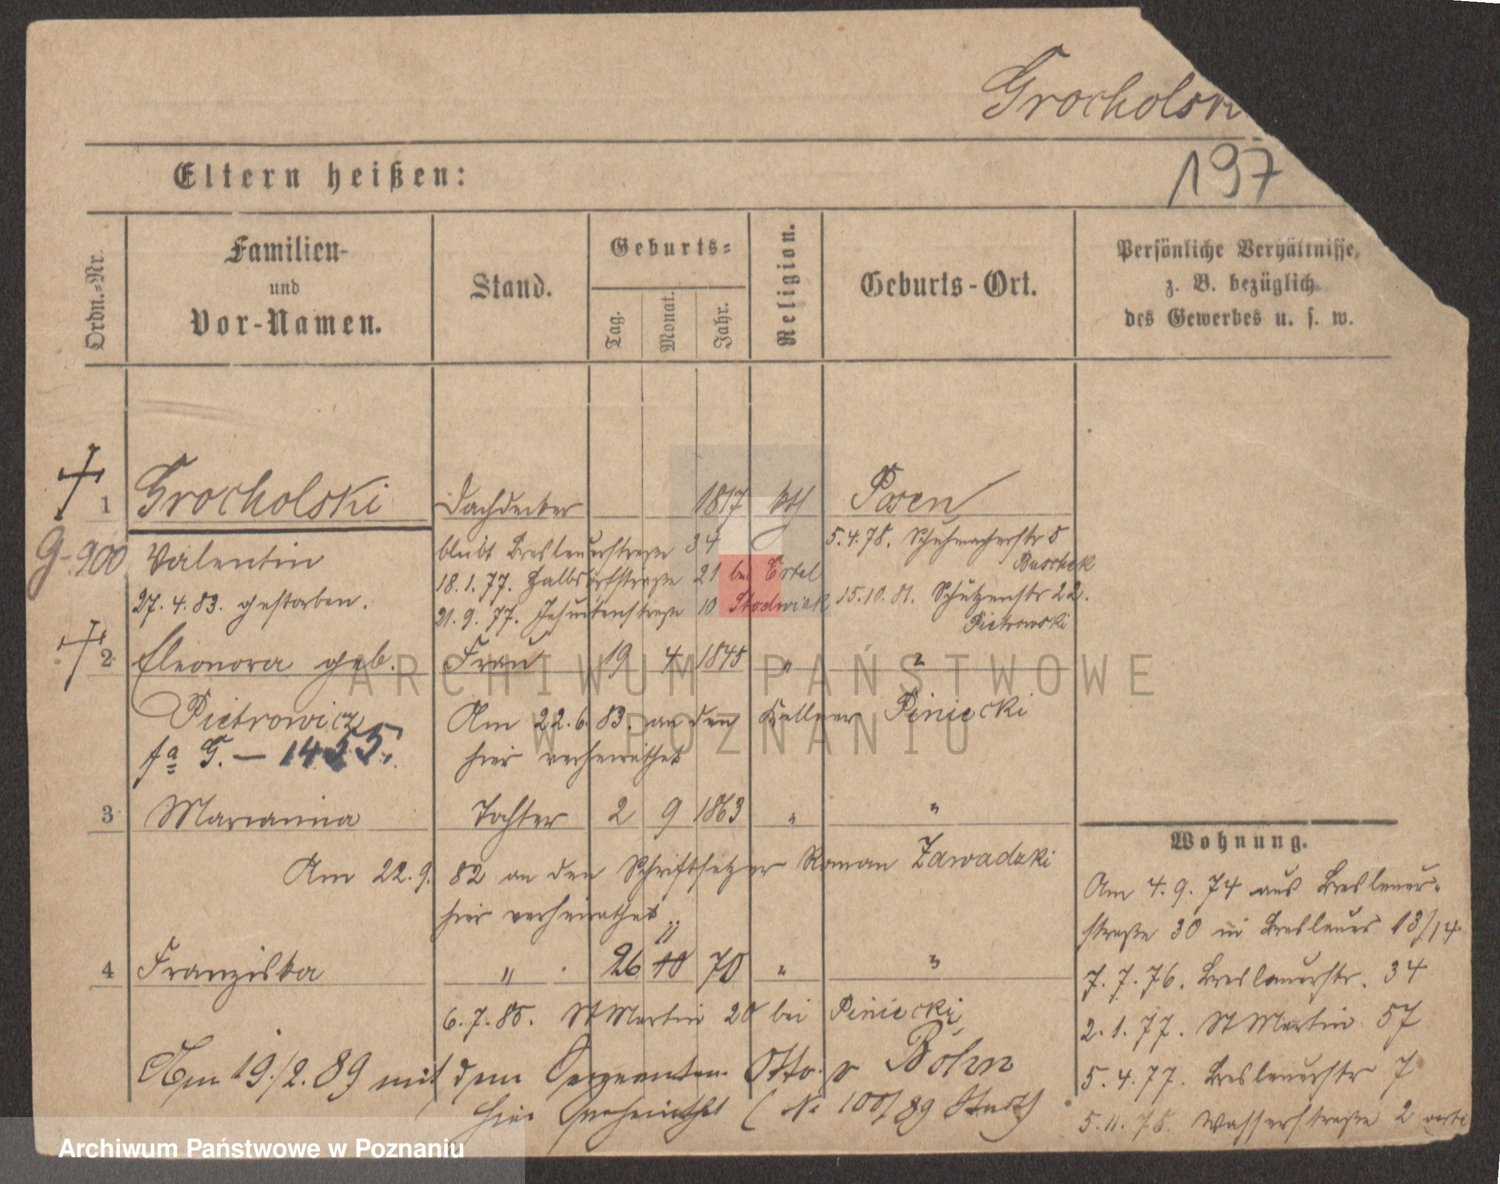 Grocholski
197
Eltern heißen:
Ordn.-Nr.
Familien-
und
Vor-Namen.
Stand.
Geburts-
Tag.
Monat.
Jahr.
Religion.
Geburts-Ort.
Persönliche Verhältnisse,
z. B. bezüglich
des Gewerbes u. s. w.
1 Grocholski Dachdecker 1817 kth Posen
G-900 Valentin
27.4.83. gestorben.
bleibt Breslauerstraße 34
18.1.77. Halbdorfstraße 21 bei Ertel
21.9.77. Jesuitenstraße 10
5.4.78. Schuhmacherstr 5
15.10.81. Schützenstr 22.
Pietrowski
2 Eleonora geb. Frau 19 4 1845 " "
Pietrowicz
fa G. – 1455.
Am 22.6.83. an den Kellner Piniecki
hier verheirathet
3 Marianna Tochter 2 9 1863 " "
Am 22.9.82 an den Schriftsetzer Roman Zawadzki
hier verheirathet
11
4 Franziska " 26 10 70 " "
6.7.85. St Martin 20 bei Piniecki
Am 19./2.89 mit dem Sergeanten Otto v Böhn
hier verheirathet (No 100/89 Stadt)
Wohnung.
Am 4.9.74 aus Breslauer-
straße 30 in Breslauer 13/14
7.7.76. Breslauerstr. 34
2.1.77. St Martin 57
5.4.77. Breslauerstr 7
5.11.78. Wasserstraße 2
ARCHIWUM PAŃSTWOWE
W POZNANIU
Archiwum Państwowe w Poznaniu